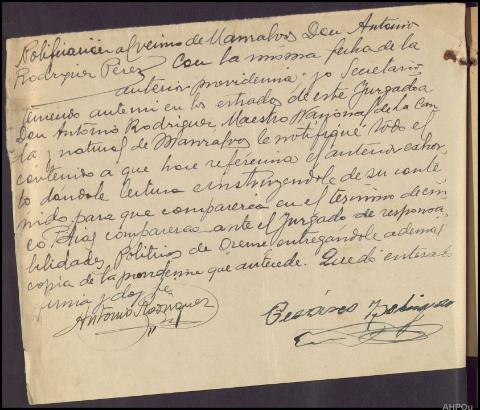 Notificación al vecino de Manzalvos Don Antonio
Rodriguez Perez Con la misma fecha de la
anterior providencia yo Secretario
teniendo ante mi en los estrados de este Juzgado a
Don Antonio Rodriguez Maestro Nacional de la
y natural de Manzalvos le notifiqué todo el
contenido a que hace referencia el anterior exhor
to dándole lectura e instruyendole de su conte
nido para que comparezca en el termino de cin
co Dias comparezca ante el Juzgado de responsa
bilidades Politicas de Orense entregándole además
copia de la providencia que antecede. Quedó enterado
firma y doy fe
Antonio Rodriguez
AHPOu